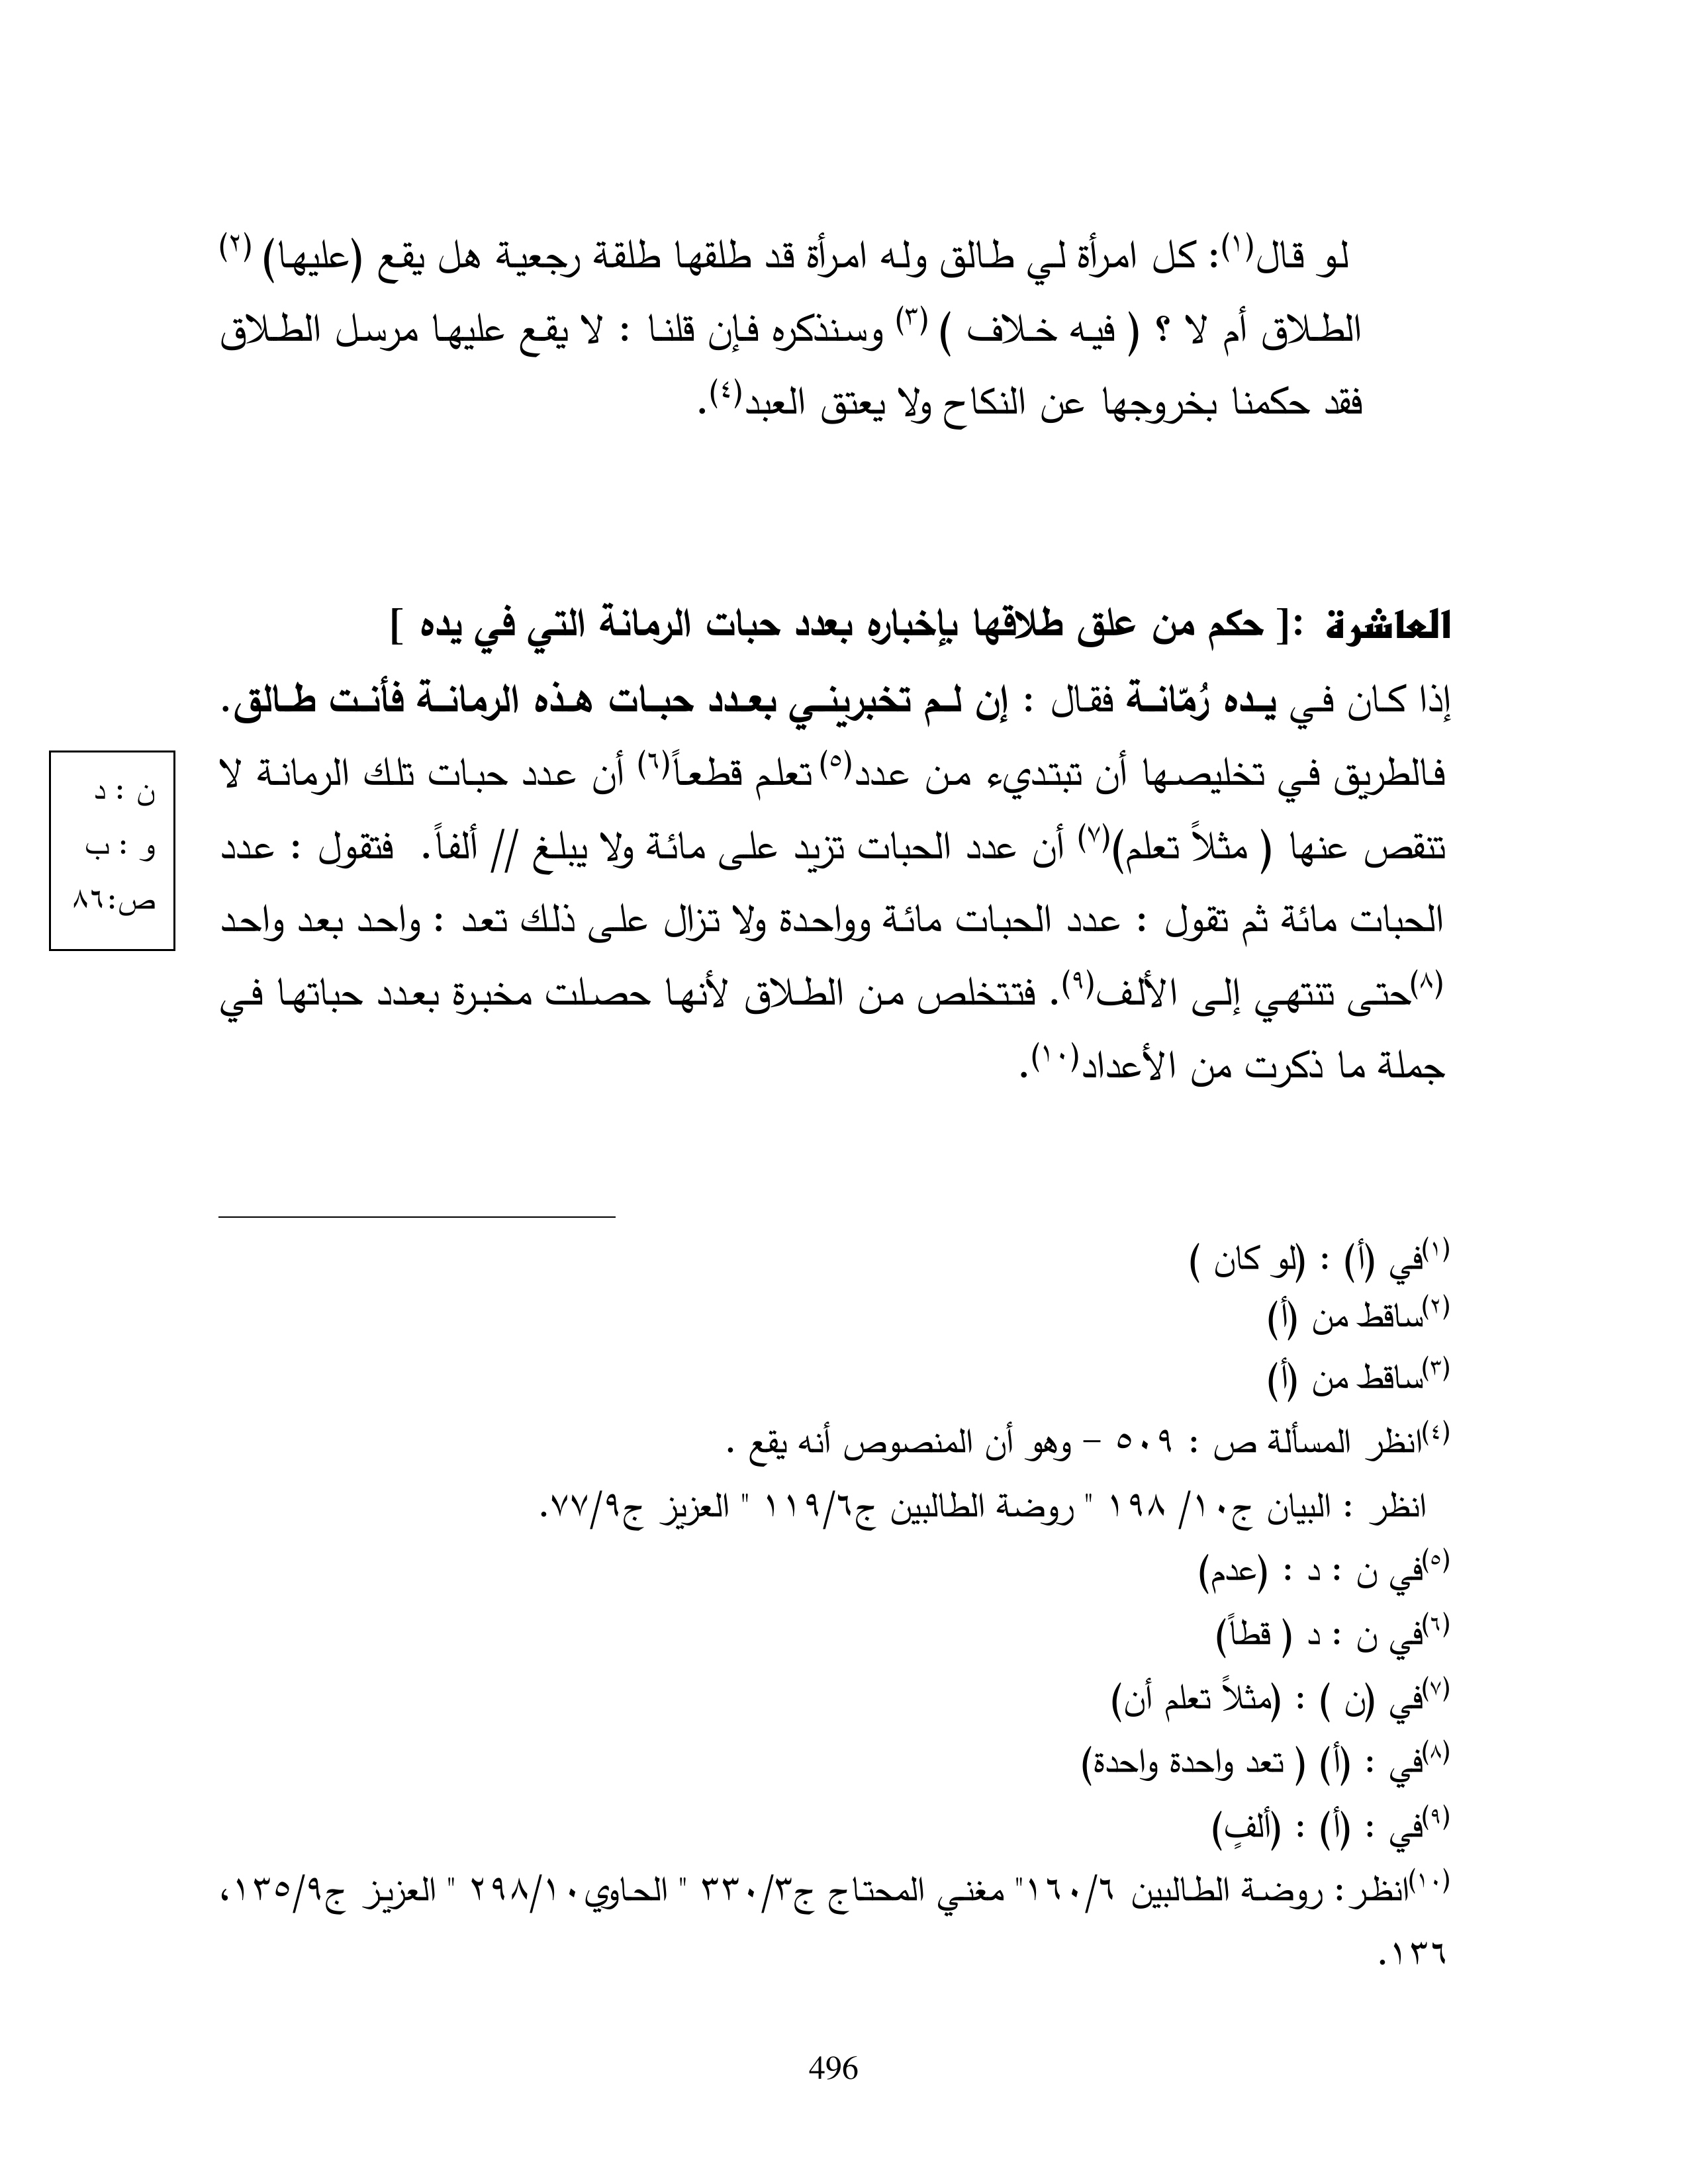 لو قال(١): كل امرأة لي طالق وله امرأة قد طلقها طلقة رجعية هل يقع (عليها) (٢)
الطلاق أم لا ؟ ( فيه خلاف ) (٣) وسنذكره فإن قلنا : لا يقع عليها مرسل الطلاق
فقد حكمنا بخروجها عن النكاح ولا يعتق العبد(٤).
العاشرة :[ حكم من علق طلاقها بإخباره بعدد حبات الرمانة التي في يده ]
إذا كان في يده رُمّانة فقال : إن لم تخبريني بعدد حبات هذه الرمانة فأنت طالق.
فالطريق في تخليصها أن تبتديء من عدد(٥) تعلم قطعاً(٦) أن عدد حبات تلك الرمانة لا
تنقص عنها ( مثلاً تعلم)(٧) أن عدد الحبات تزيد على مائة ولا يبلغ // ألفاً. فتقول : عدد
الحبات مائة ثم تقول : عدد الحبات مائة وواحدة ولا تزال على ذلك تعد : واحد بعد واحد
(٨)حتى تنتهي إلى الألف(٩). فتتخلص من الطلاق لأنها حصلت مخبرة بعدد حباتها في
جملة ما ذكرت من الأعداد(١٠).
ن : د
و : ب
ص:٨٦
(١)في (أ) : (لو كان )
(٢)ساقط من (أ)
(٣)ساقط من (أ)
(٤)انظر المسألة ص : ٥٠٩ – وهو أن المنصوص أنه يقع .
انظر : البيان ج١٠/ ١٩٨ " روضة الطالبين ج٦/١١٩ " العزيز ج٩/٧٧.
(٥)في ن : د : (عدم)
(٦)في ن : د ( قطاً)
(٧)في (ن ) : (مثلاً تعلم أن)
(٨)في : (أ) ( تعد واحدة واحدة)
(٩)في : (أ) : (ألفٍ)
(١٠)انظر: روضة الطالبين ٦/١٦٠" مغني المحتاج ج٣/٣٣٠ " الحاوي١٠/٢٩٨ " العزيز ج٩/١٣٥،
١٣٦.
496